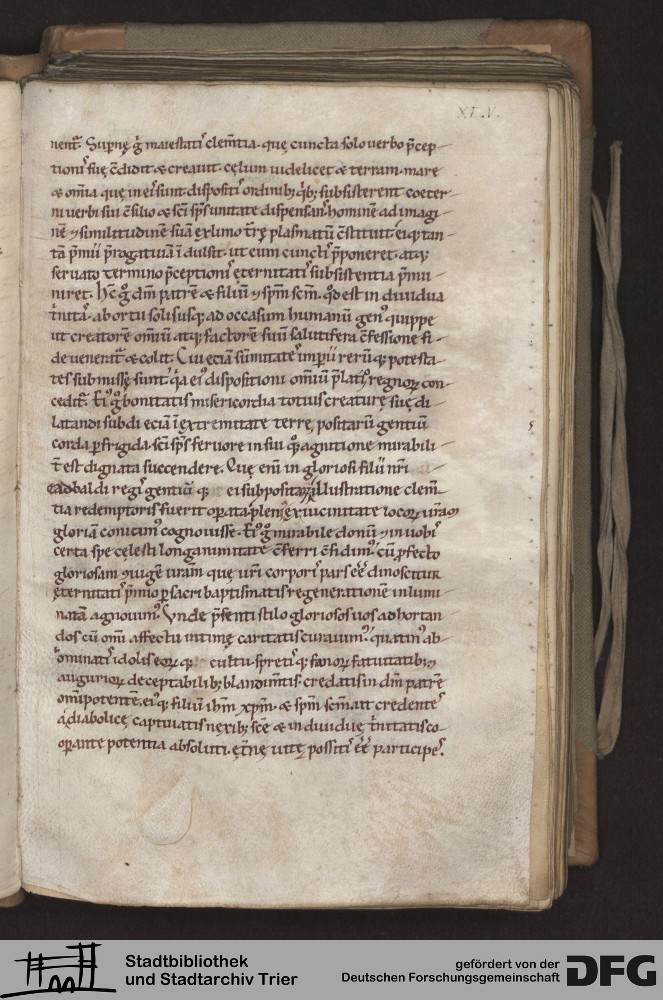 XLV.
uenit᷑. Sup̱nę g̊ maiestatiˢ clem̅tia. quę cuncta solo uerbo p̄cep-
tioniˢ suę c̅didit & creauit. cęlum uidelicet & terram. mare
& om̅ia quę in eiˢ sunt. dispositiˢ ordinib; q̇b; subsisterent. coeter-
ni uerbi sui c̅silio & sc̅i sp̅s unitate dispensanˢ hominē ad imagi-
nē ⁊ similitudinē suā ex limo t̅rę plasmatū c̅stituit. eiq; tan-
tā p̄mii p̄rogatiuā ī dulsit. ut eum cunctiˢ p̄poneret. atq;
seruato termino p̄ceptioniˢ ęternitatiˢ subsistentia p̄mu-
niret. Hc̅ g̊ dm̅ patrē & filiū ⁊ sp̅m sc̅m. qd̊ est in diuidua
t̅nitaˢ. ab ortu solis usq; ad occasum humanū gen᷒ quippe
ut creatorē om̅iū atq; factorē suū salutifera c̅fessione fi-
de ueneriť & colit. Cui eciā sūmitateˢ imp̱ii rerūq; potesta-
tes submissę sunt. q̇a ei᷒ dispositioni om̅iū p̄latiˢ regnoꝝ con-
cedit᷑. Ei᷒ g̊ bonitatis misericordia totius creaturę suę di-
latandi subdi eciā ī extremitate terre, positarū gentiū
corda p̱frigida. sc̅i sp̅s feruore in sui q̊ꝫ agnitione mirabili-
t̅ est dignata succendere. Quę eni̅ in gloriosi filii nr̅i
eadbaldi regiˢ gentiūq; ei subpositaꝝ illustratione clem̅-
tia redemptoris fuerit oꝑata pleni᷒ ex uicinitate locoꝝ ur̅am
gloriā conicim᷒ cognouisse. Ei᷒ g̊ mirabile donū ⁊ in uobiˢ
certa spe cęlesti longanimitate c̅ferri c̅fidim᷒. cū ꝓfecto
gloriosam ⁊iugē ur̅am quę ur̅i corporiˢ pars ee̅ dinoscitur
ęternitatiˢ p̄mio ꝑ sacri baptismatis regenerationē inlumi-
natā agnouim᷒. Vnde p̄senti stilo gloriosos uos adhortan-
dos cū om̅i affectu intimę caritatis curauim᷒. quatin᷒ ab-
ominatiˢ idolis eoꝝq; cultu. spretisq; fanoꝝ fatuitatib; ⁊
augurioꝝ deceptabilib; blandim̅tis. credatis in dm̅ patrē
om̅ipotentē. ei᷒q; filiū ihm̅ xp̅m. & sp̅m sc̅m att credenteˢ
a diabolicę captiuatis nexib; sc̅ę & in diuiduę t̅nitatis co-
oꝑante potentia absoluti. ęt̅nę uitę possitiˢ ee̅ participeˢ.
Stadtbibliothek
und Stadtarchiv Trier
gefördert von der
Deutschen Forschungsgemeinschaft
DFG